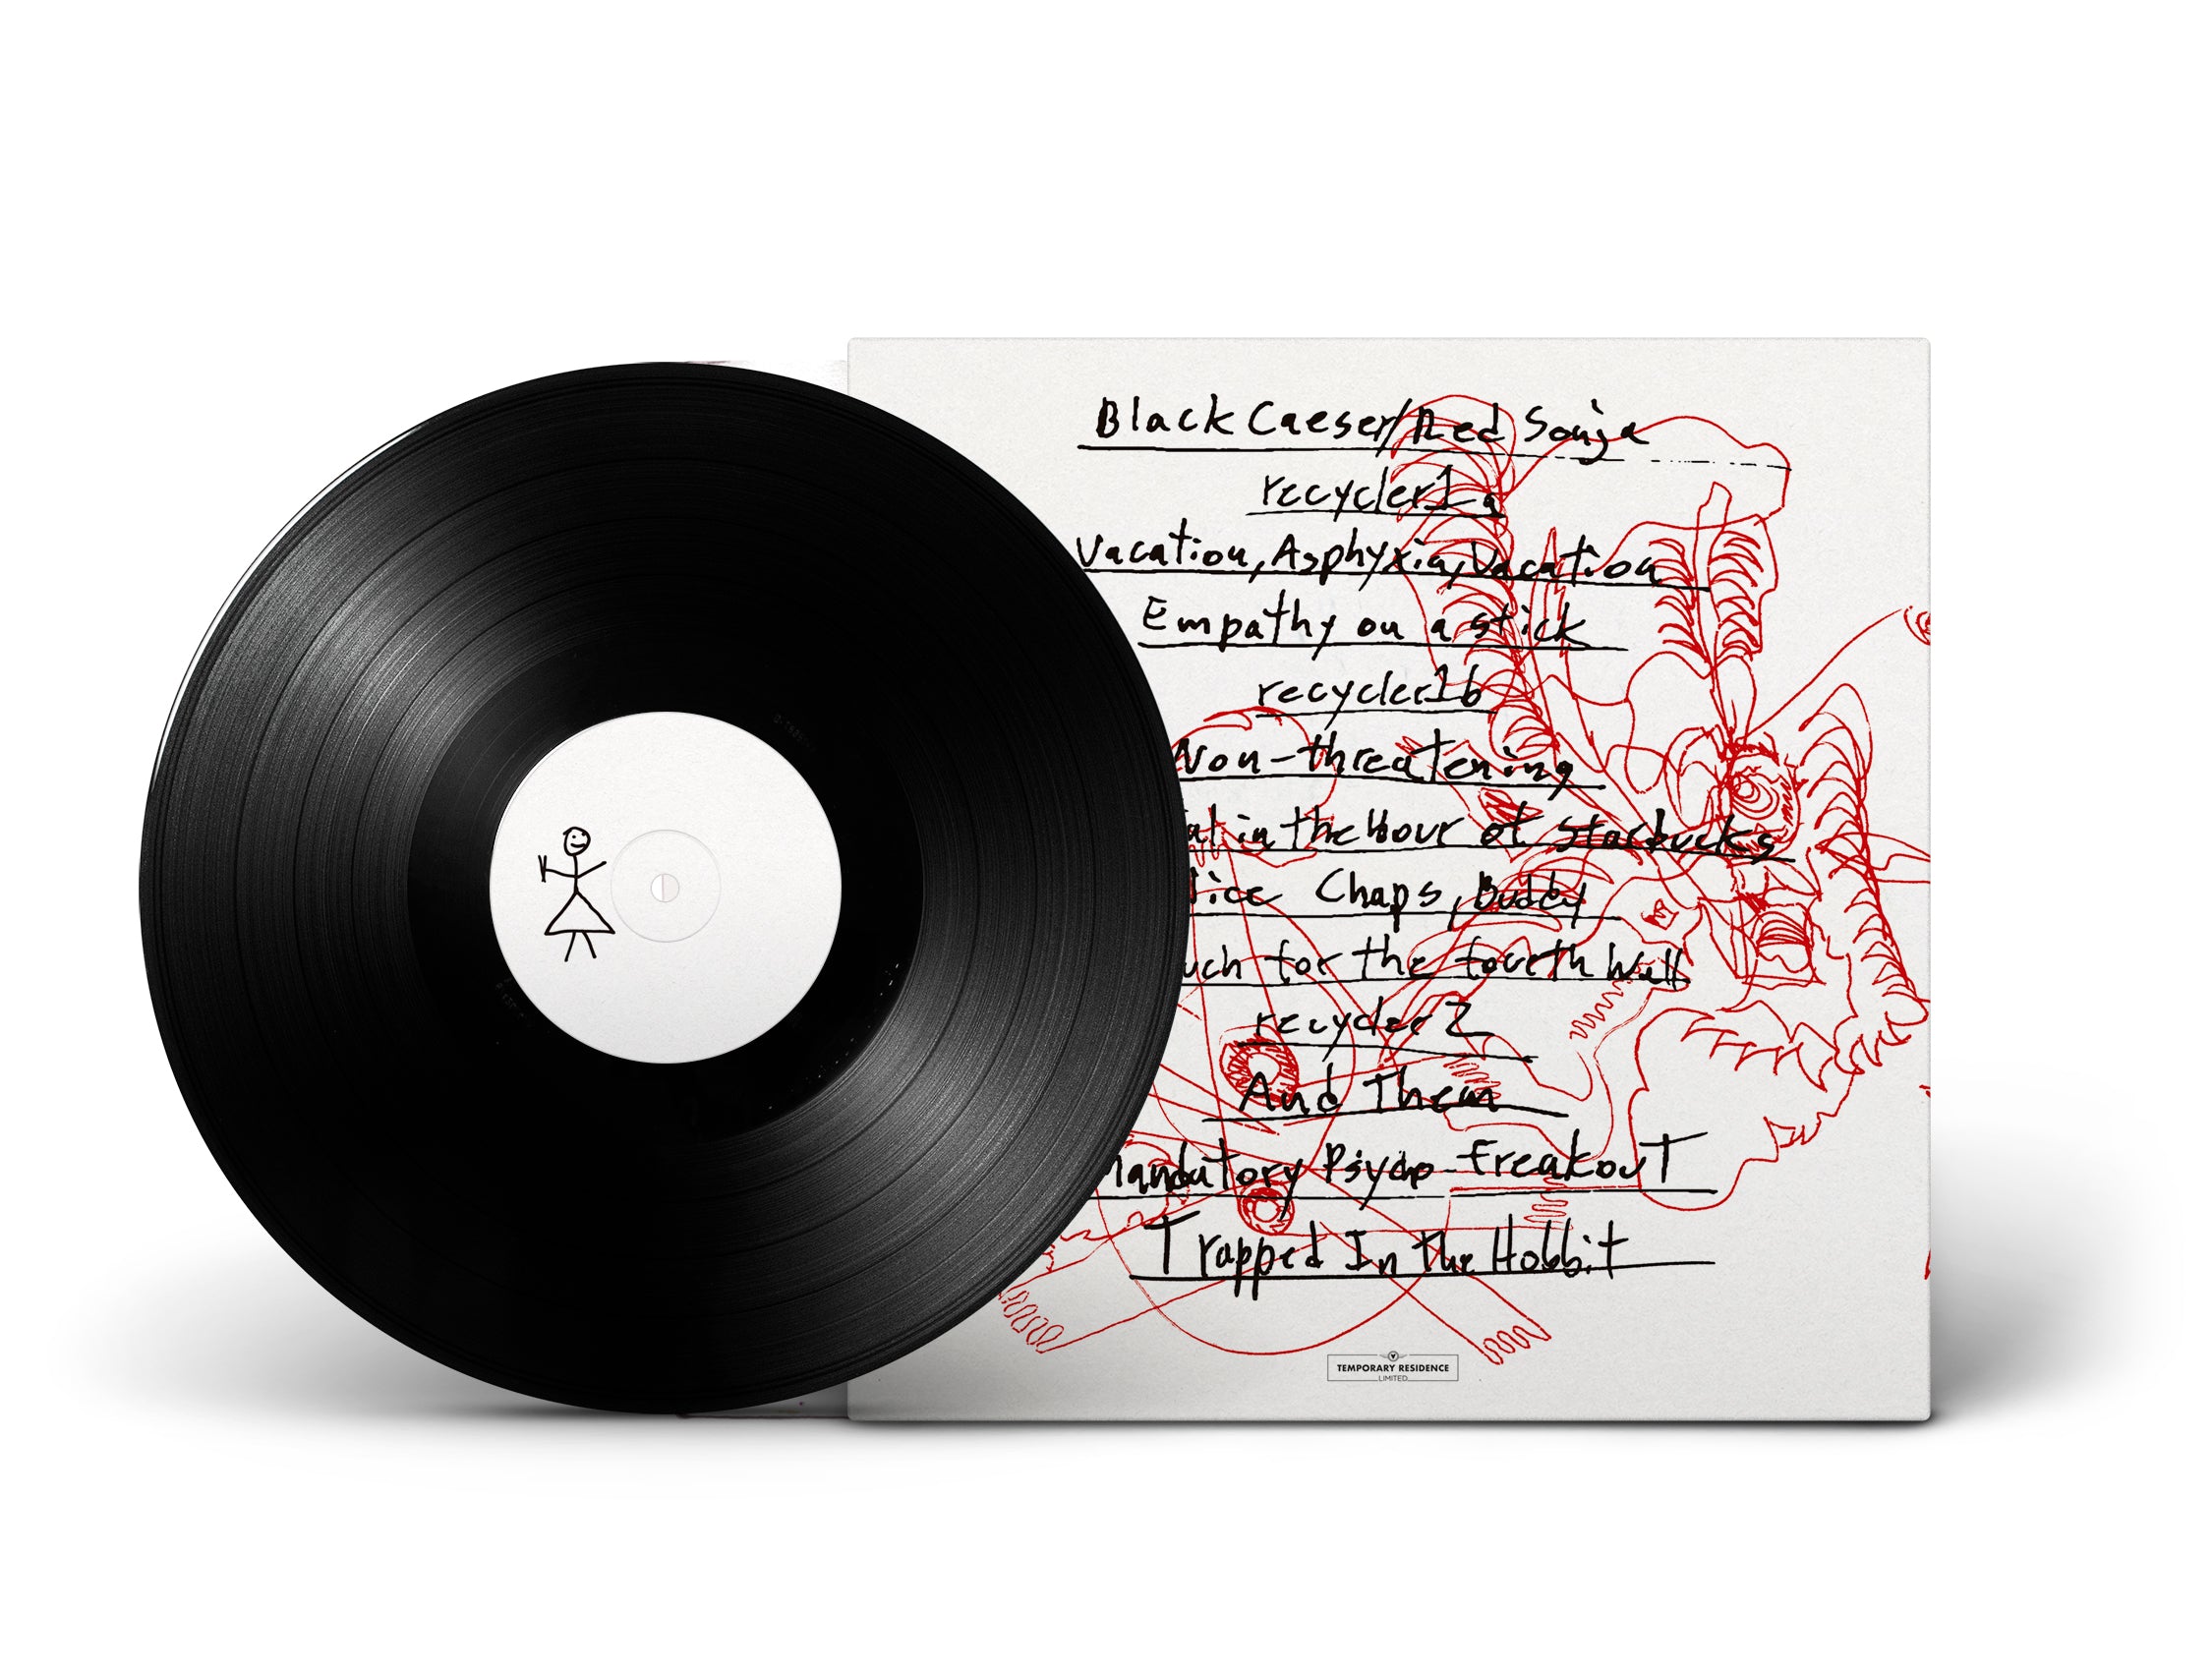 Black Caeser/Red Sonja
recycler1a
Vacation, Asphyxia, Vacation
Empathy on a stick
recycler1b
Non-threatening
in the Hour of Starbucks
Chaps, Buddy
for the fourth Wall
recycler 2
And Them
Mandatory Psyop Freakout
Trapped In The Hobbit
TEMPORARY RESIDENCE
LIMITED